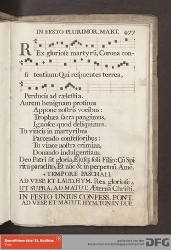 IN FESTO PLURIMOR. MART. 477
Rex gloriose martyrū, Corona con-
fitentium Qui respuentes terrea,
Perducis ad cælestia.
Aurem benignam protinus
Appone nostris vocibus:
Trophæa sacra pangimus,
Ignosce quod deliquimus.
Tu vincis in martyribus
Parcendo confessoribus:
Tu vince nostra crimina,
Donando indulgentiam.
Deo Patri sit gloria, Eiusq; soli Filio: Cū Spi
ritu paraclito, Et nūc & in perpetuū. Amē.
TEMPORE PASCHALI
AD VESP. ET LAUD. HYM. Rex gloriose,
UT SUPRA. AD MATUT. Æterna Christi.
IN FESTO UNIUS CONFESS. PONT.
AD VESP. ET MATUT. HYM. TON. IN DIE
DFG